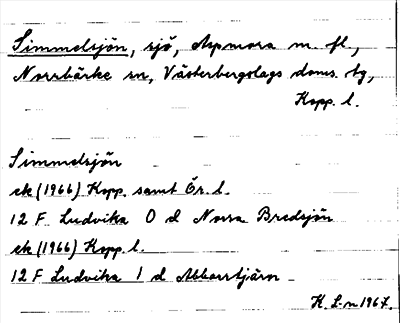 Simmelsjön, sjö, Aspmora m. fl.,
Norrbärke sn, Västerbergslags doms. tg,
Kopp. l.
Simmelsjön
ek (1966) Kopp. samt Ör. l.
12 F Ludvika 0 d Norra Bredsjön
ek (1966) Kopp. l.
12 F Ludvika 1 d Abborrtjärn
K. L-n 1967.